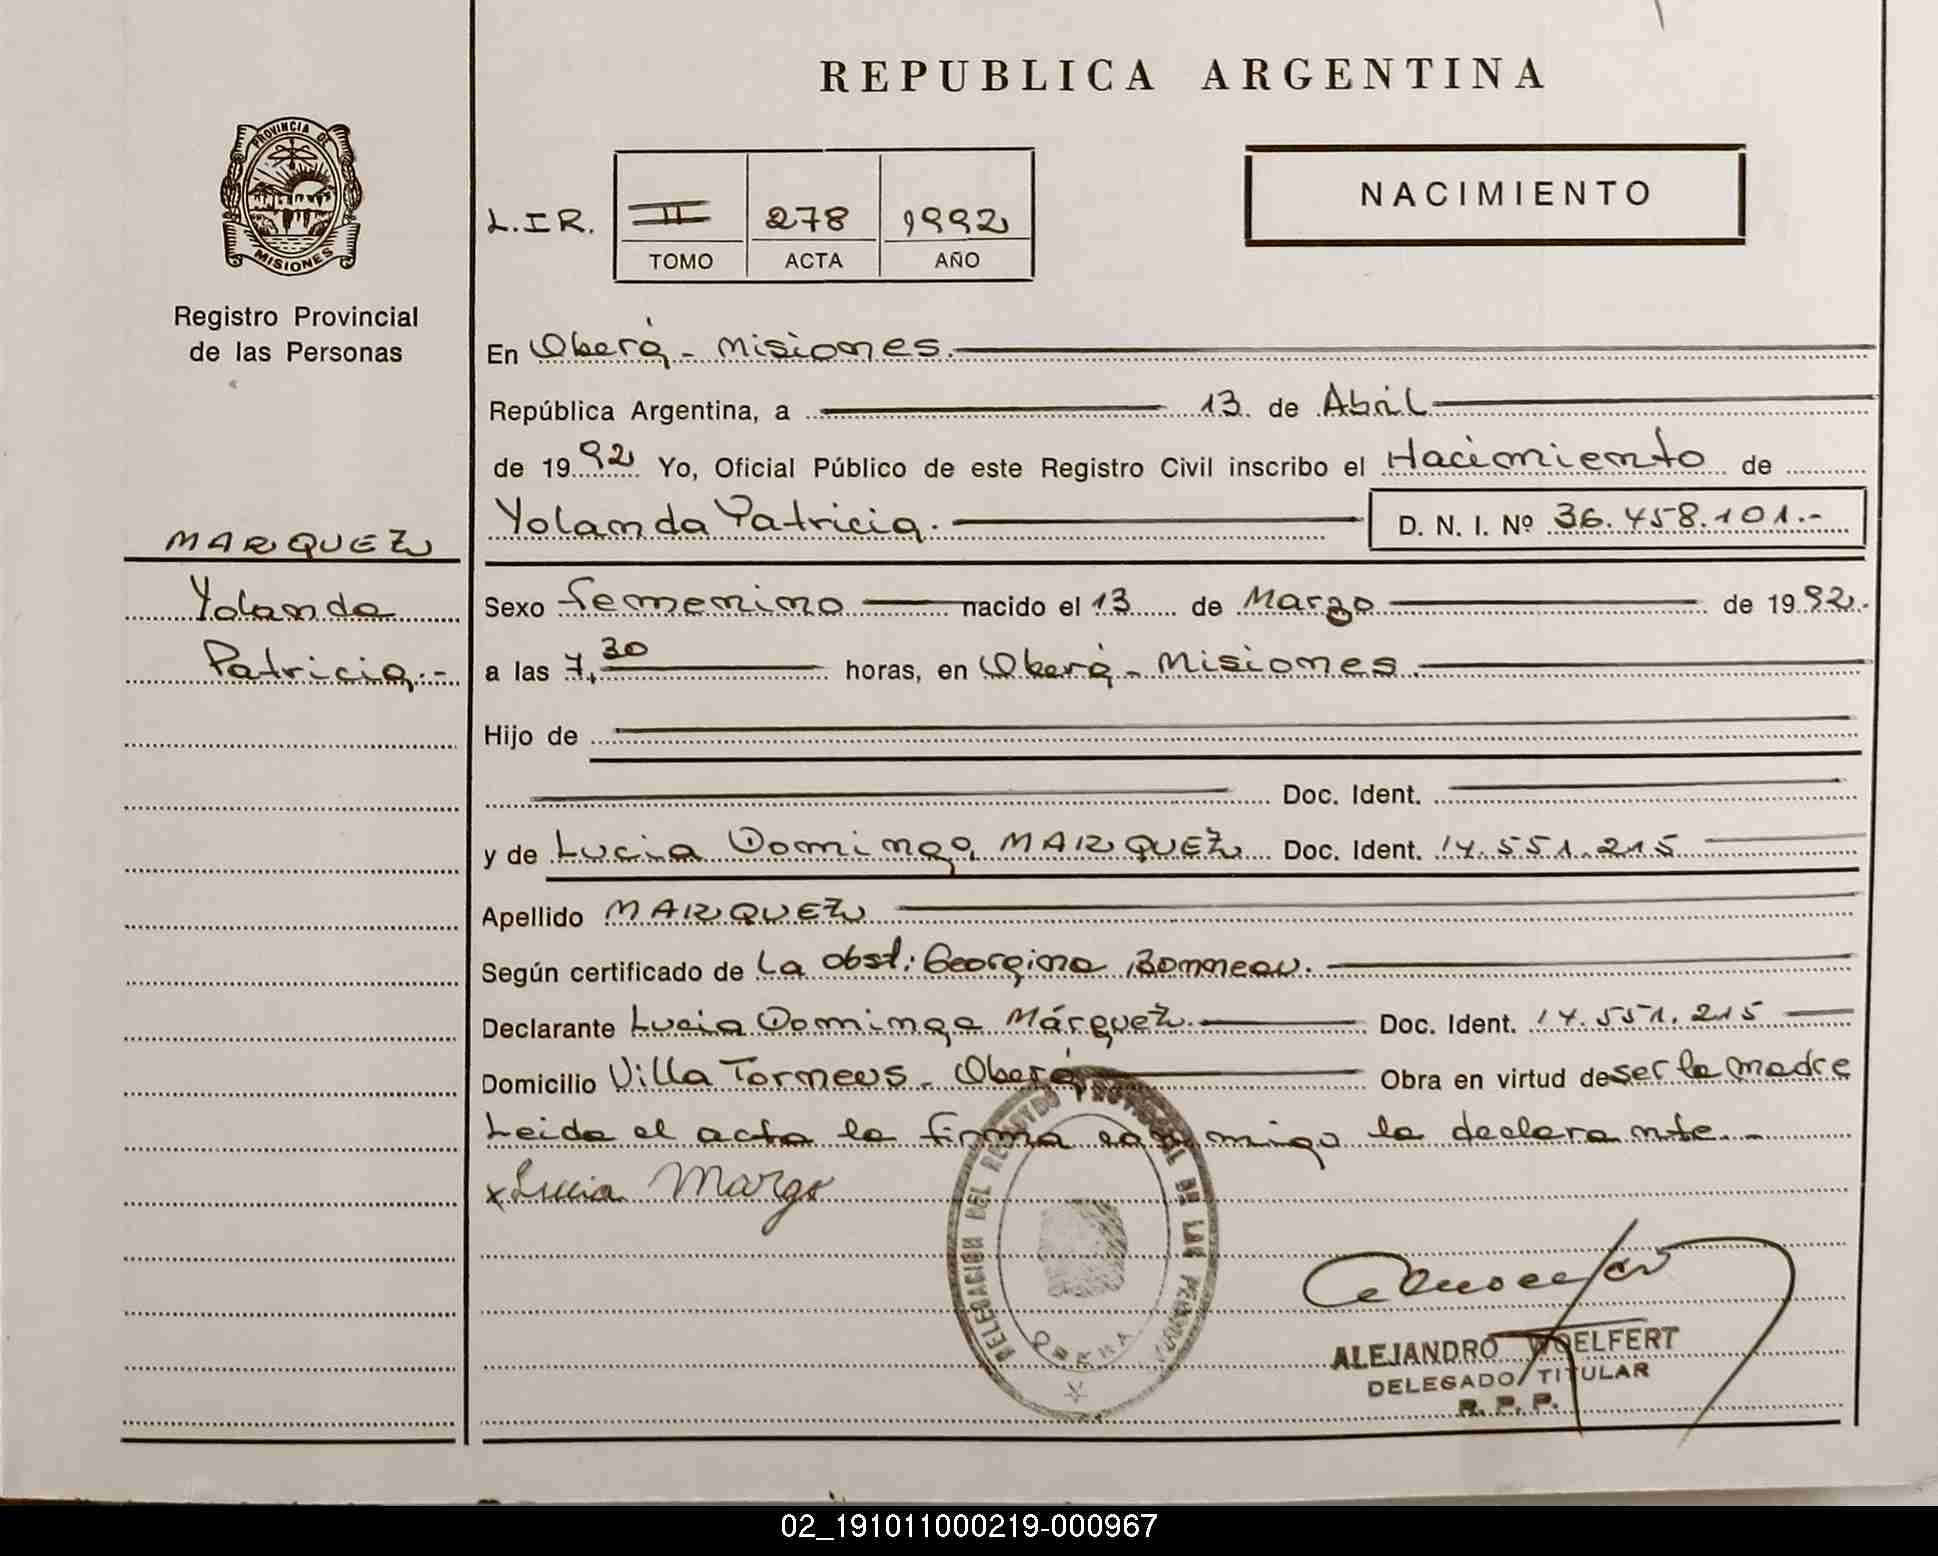 REPUBLICA ARGENTINA
PROVINCIA DE
MISIONES
Registro Provincial
de las Personas
NACIMIENTO
L.I.R. II 278 1992
TOMO ACTA AÑO
En Oberá - Misiones.
República Argentina, a 13 de Abril
de 1992 Yo, Oficial Público de este Registro Civil inscribo el Nacimiento de
Yolanda Patricia. D. N. I. Nº 36.458.101.-
MARQUEZ
Yolanda
Patricia.-
Sexo femenino nacido el 13 de Marzo de 1992.
a las 7,30 horas, en Oberá - Misiones.
Hijo de
Doc. Ident.
y de Lucia Dominga MARQUEZ Doc. Ident. 14.551.215
Apellido MARQUEZ
Según certificado de La obst: Georgina Bonneau.
Declarante Lucia Dominga Márquez. Doc. Ident. 14.551.215
Domicilio Villa Torneus - Oberá Obra en virtud de ser la madre
Leida el acta la firma conmigo la declarante.-
x Lucia Margs
DELEGACION DEL REGISTRO PROVINCIAL DE LAS PERSONAS
OBERA
ALEJANDRO WOELFERT
DELEGADO TITULAR
R. P. P.
02_191011000219-000967